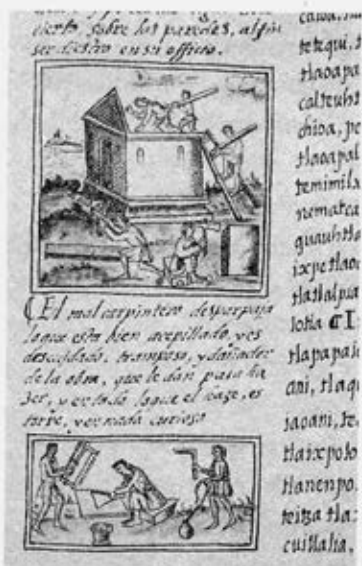 cierto, sobre las paredes, al fin
ser diestro en su officio.
¶ El mal carpintero desparpaja
lo que esta bien acepillado, y es
descuidado, tramposo, y dañador
de la obra, que le dan para ha
zer, y en todo lo que el haze, es
torpe, y en nada curioso
tetequi, t
tlaoapa
calteuht
chioa, pe
tlaoapal
temimila
nematca
quauhtla
tlatlalpia
lotla ¶ I
tlapapali
ani, tlaqi
iaoani, te,
tlaixpolo
tlanenpo.
teitza tla:
cuitlalia,